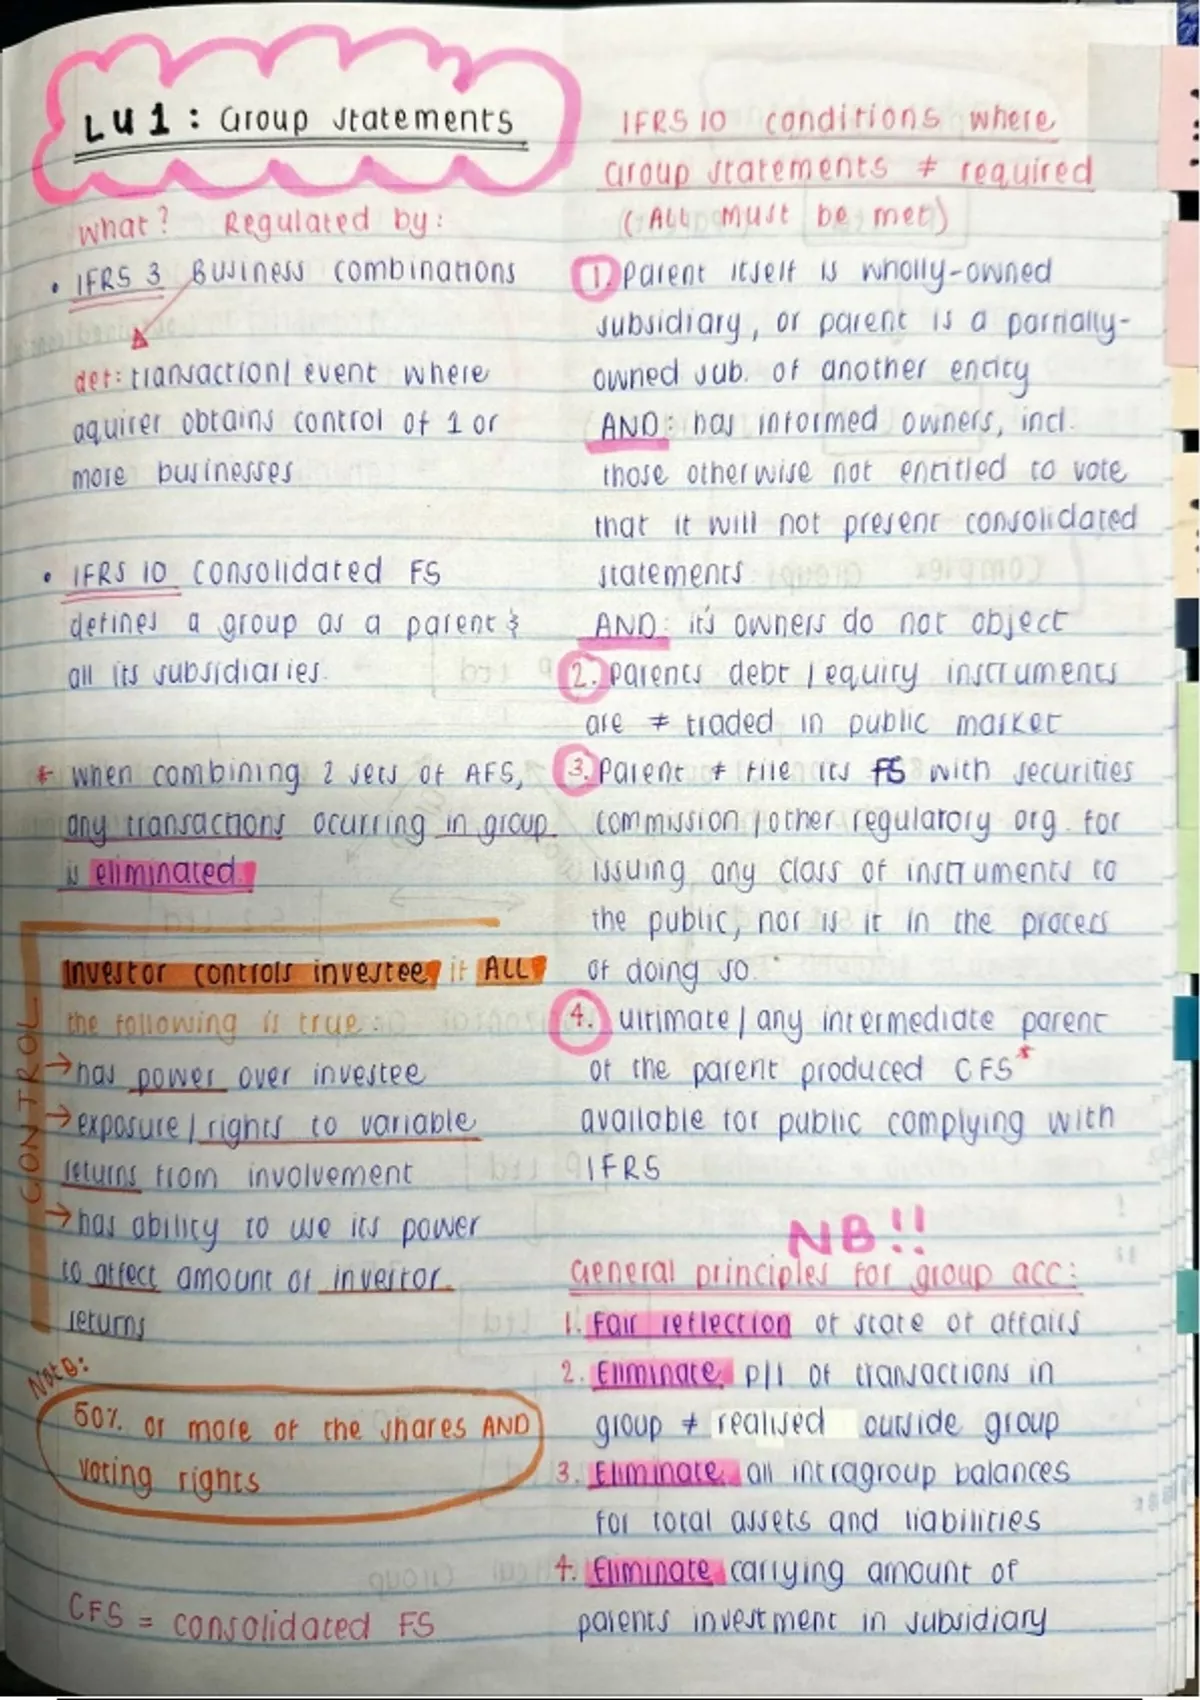 LU1: Group Statements
what? Regulated by:
• IFRS 3 Business combinations
def: transaction/ event where
aquirer obtains control of 1 or
more businesses
• IFRS 10 consolidated FS
defines a group as a parent &
all its subsidiaries.
* when combining 2 sets of AFS,
any transactions ocurring in group
is eliminated.
CONTROL
Investor controls investee if ALL
the following is true:
→ has power over investee
→ exposure / rights to variable
returns from involvement
→ has ability to use its power
to affect amount of investor
returns
Note:
50% or more of the shares AND
voting rights
CFS = consolidated FS
IFRS 10 conditions where
Group statements ≠ required
(ALL must be met)
1. Parent itself is wholly-owned
subsidiary, or parent is a partially-
owned sub. of another entity
AND: has informed owners, incl.
those otherwise not entitled to vote
that it will not present consolidated
statements
AND: it's owners do not object
2. Parents debt / equity instruments
are ≠ traded in public market
3. Parent ≠ file its FS with securities
commission / other regulatory org. for
issuing any class of instruments to
the public, nor is it in the process
of doing so.
4. ultimate / any intermediate parent
of the parent produced CFS*
available for public complying with
IFRS
NB!!
General principles for group acc:
1. Fair reflection of state of affairs
2. Eliminate p/l of transactions in
group ≠ realised outside group
3. Eliminate all intragroup balances
for total assets and liabilities
4. Eliminate carrying amount of
parents investment in subsidiary